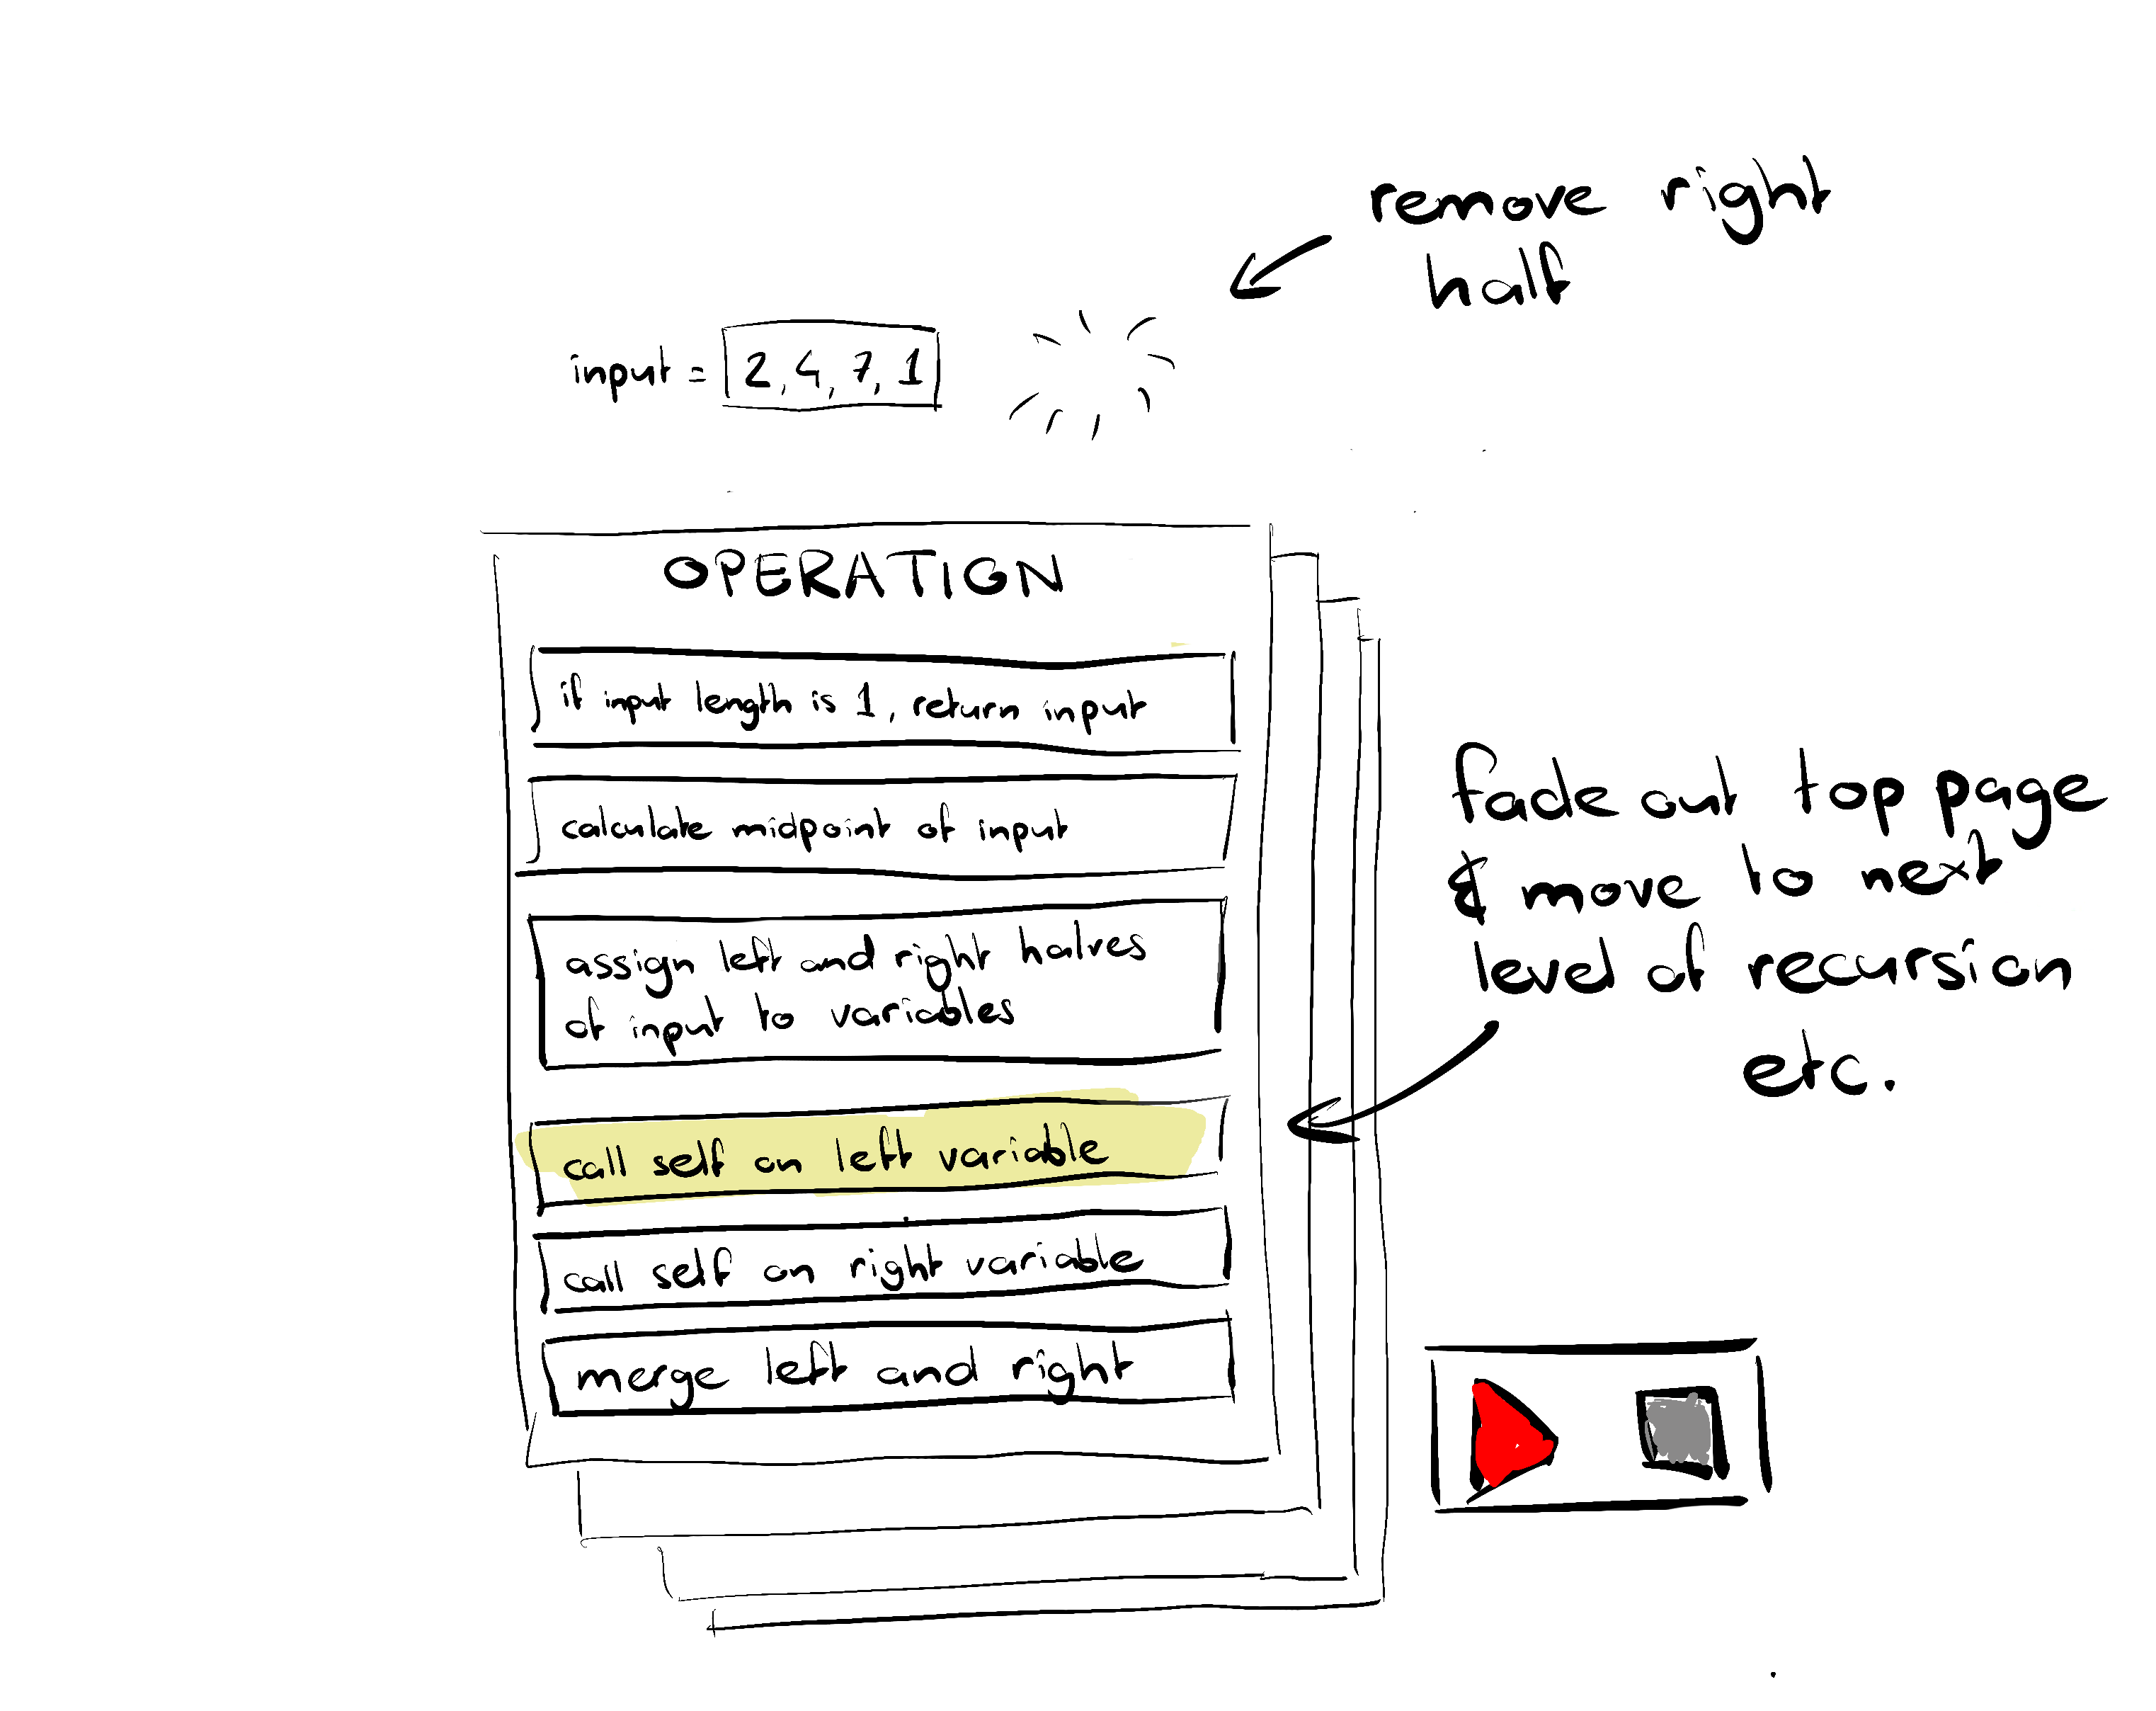 remove right
half
input = 2, 4, 7, 1
OPERATION
if input length is 1, return input
calculate midpoint of input
assign left and right halves
of input to variables
call self on left variable
call self on right variable
merge left and right
fade out top page
& move to next
level of recursion
etc.